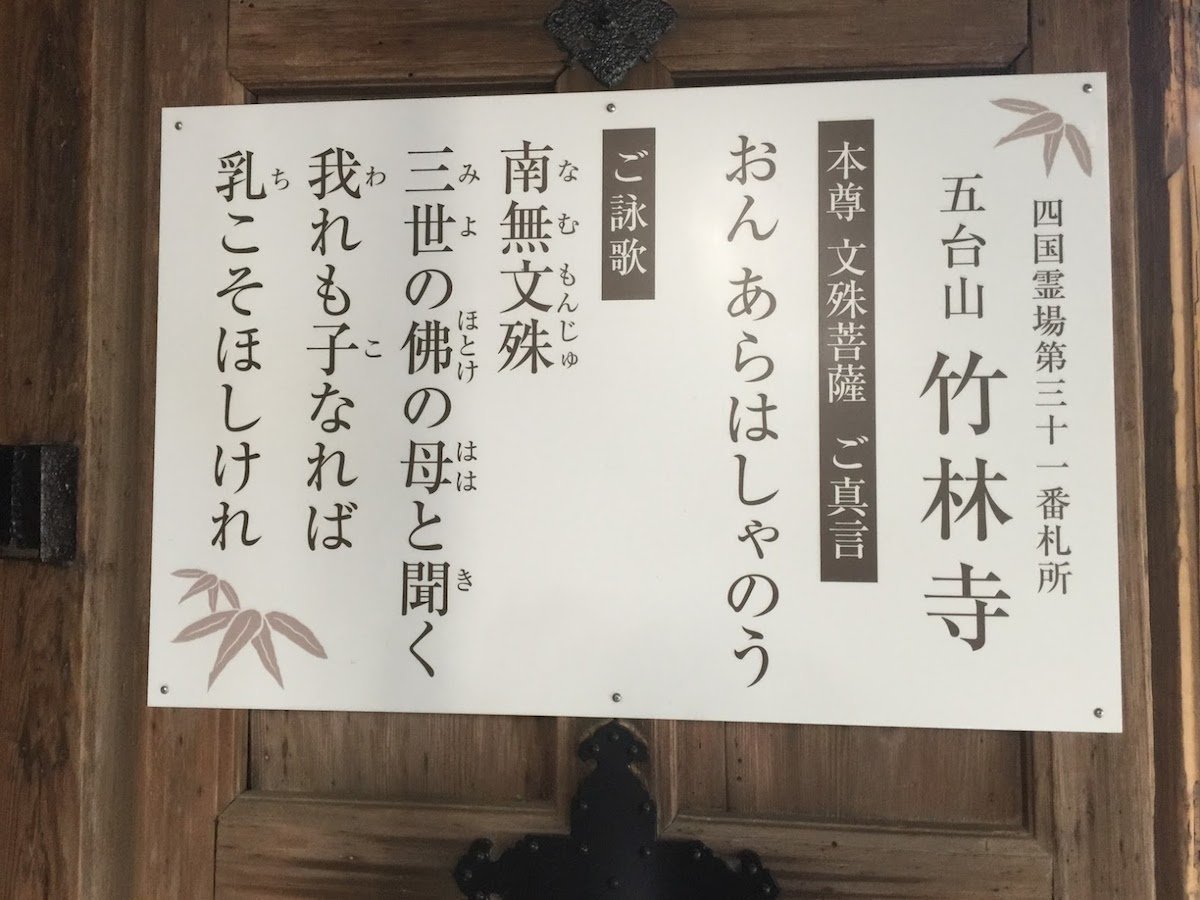 四国霊場第三十一番札所
五台山 竹林寺
本尊 文殊菩薩 ご真言
おん あらはしゃのう
ご詠歌
南無文殊
なむもんじゅ
三世の佛の母と聞く
みよ ほとけ はは き
我れも子なれば
わ こ
乳こそほしけれ
ち